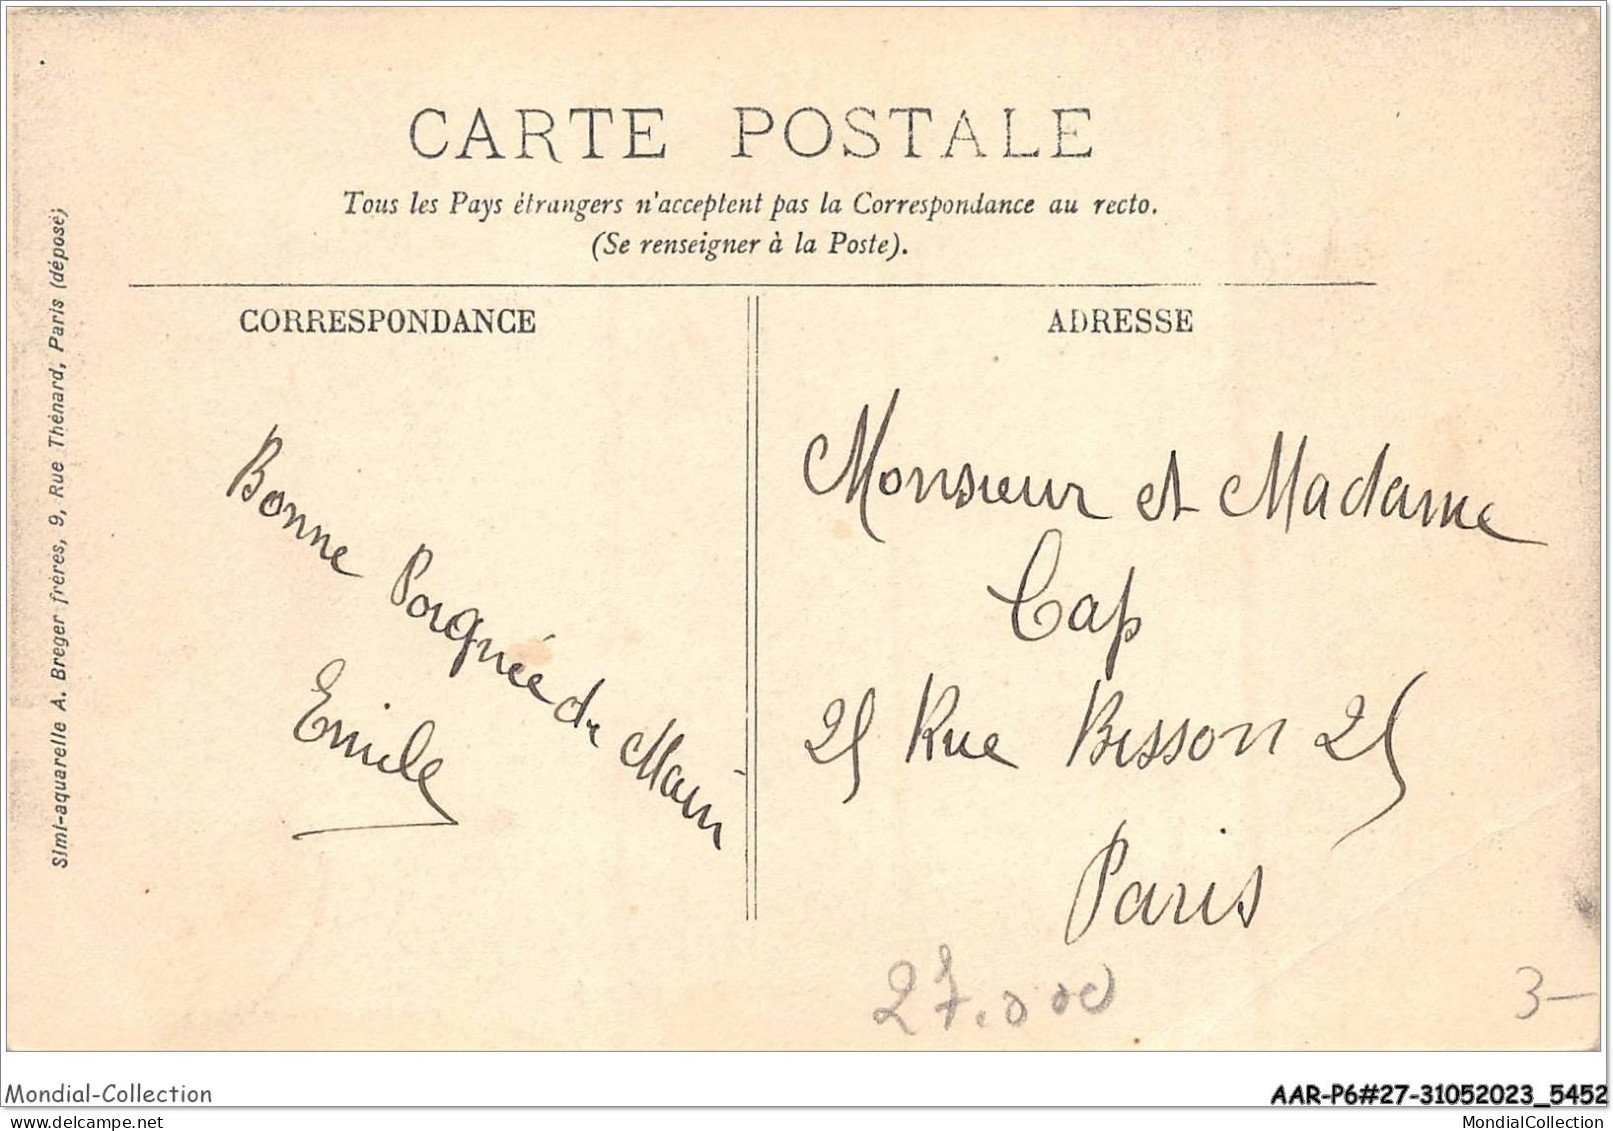 CARTE POSTALE
Tous les Pays étrangers n'acceptent pas la Correspondance au recto.
(Se renseigner à la Poste).
CORRESPONDANCE
ADRESSE
Simi-aquarelle A. Breger frères, 9, Rue Thénard, Paris (déposé)
Bonne Poignée de Main
Emile
Monsieur et Madame
Cap
25 Rue Bisson 25
Paris
27.000
3-
Mondial-Collection
AAR-P6#27-31052023_5452
delcampe.net
MondialCollection